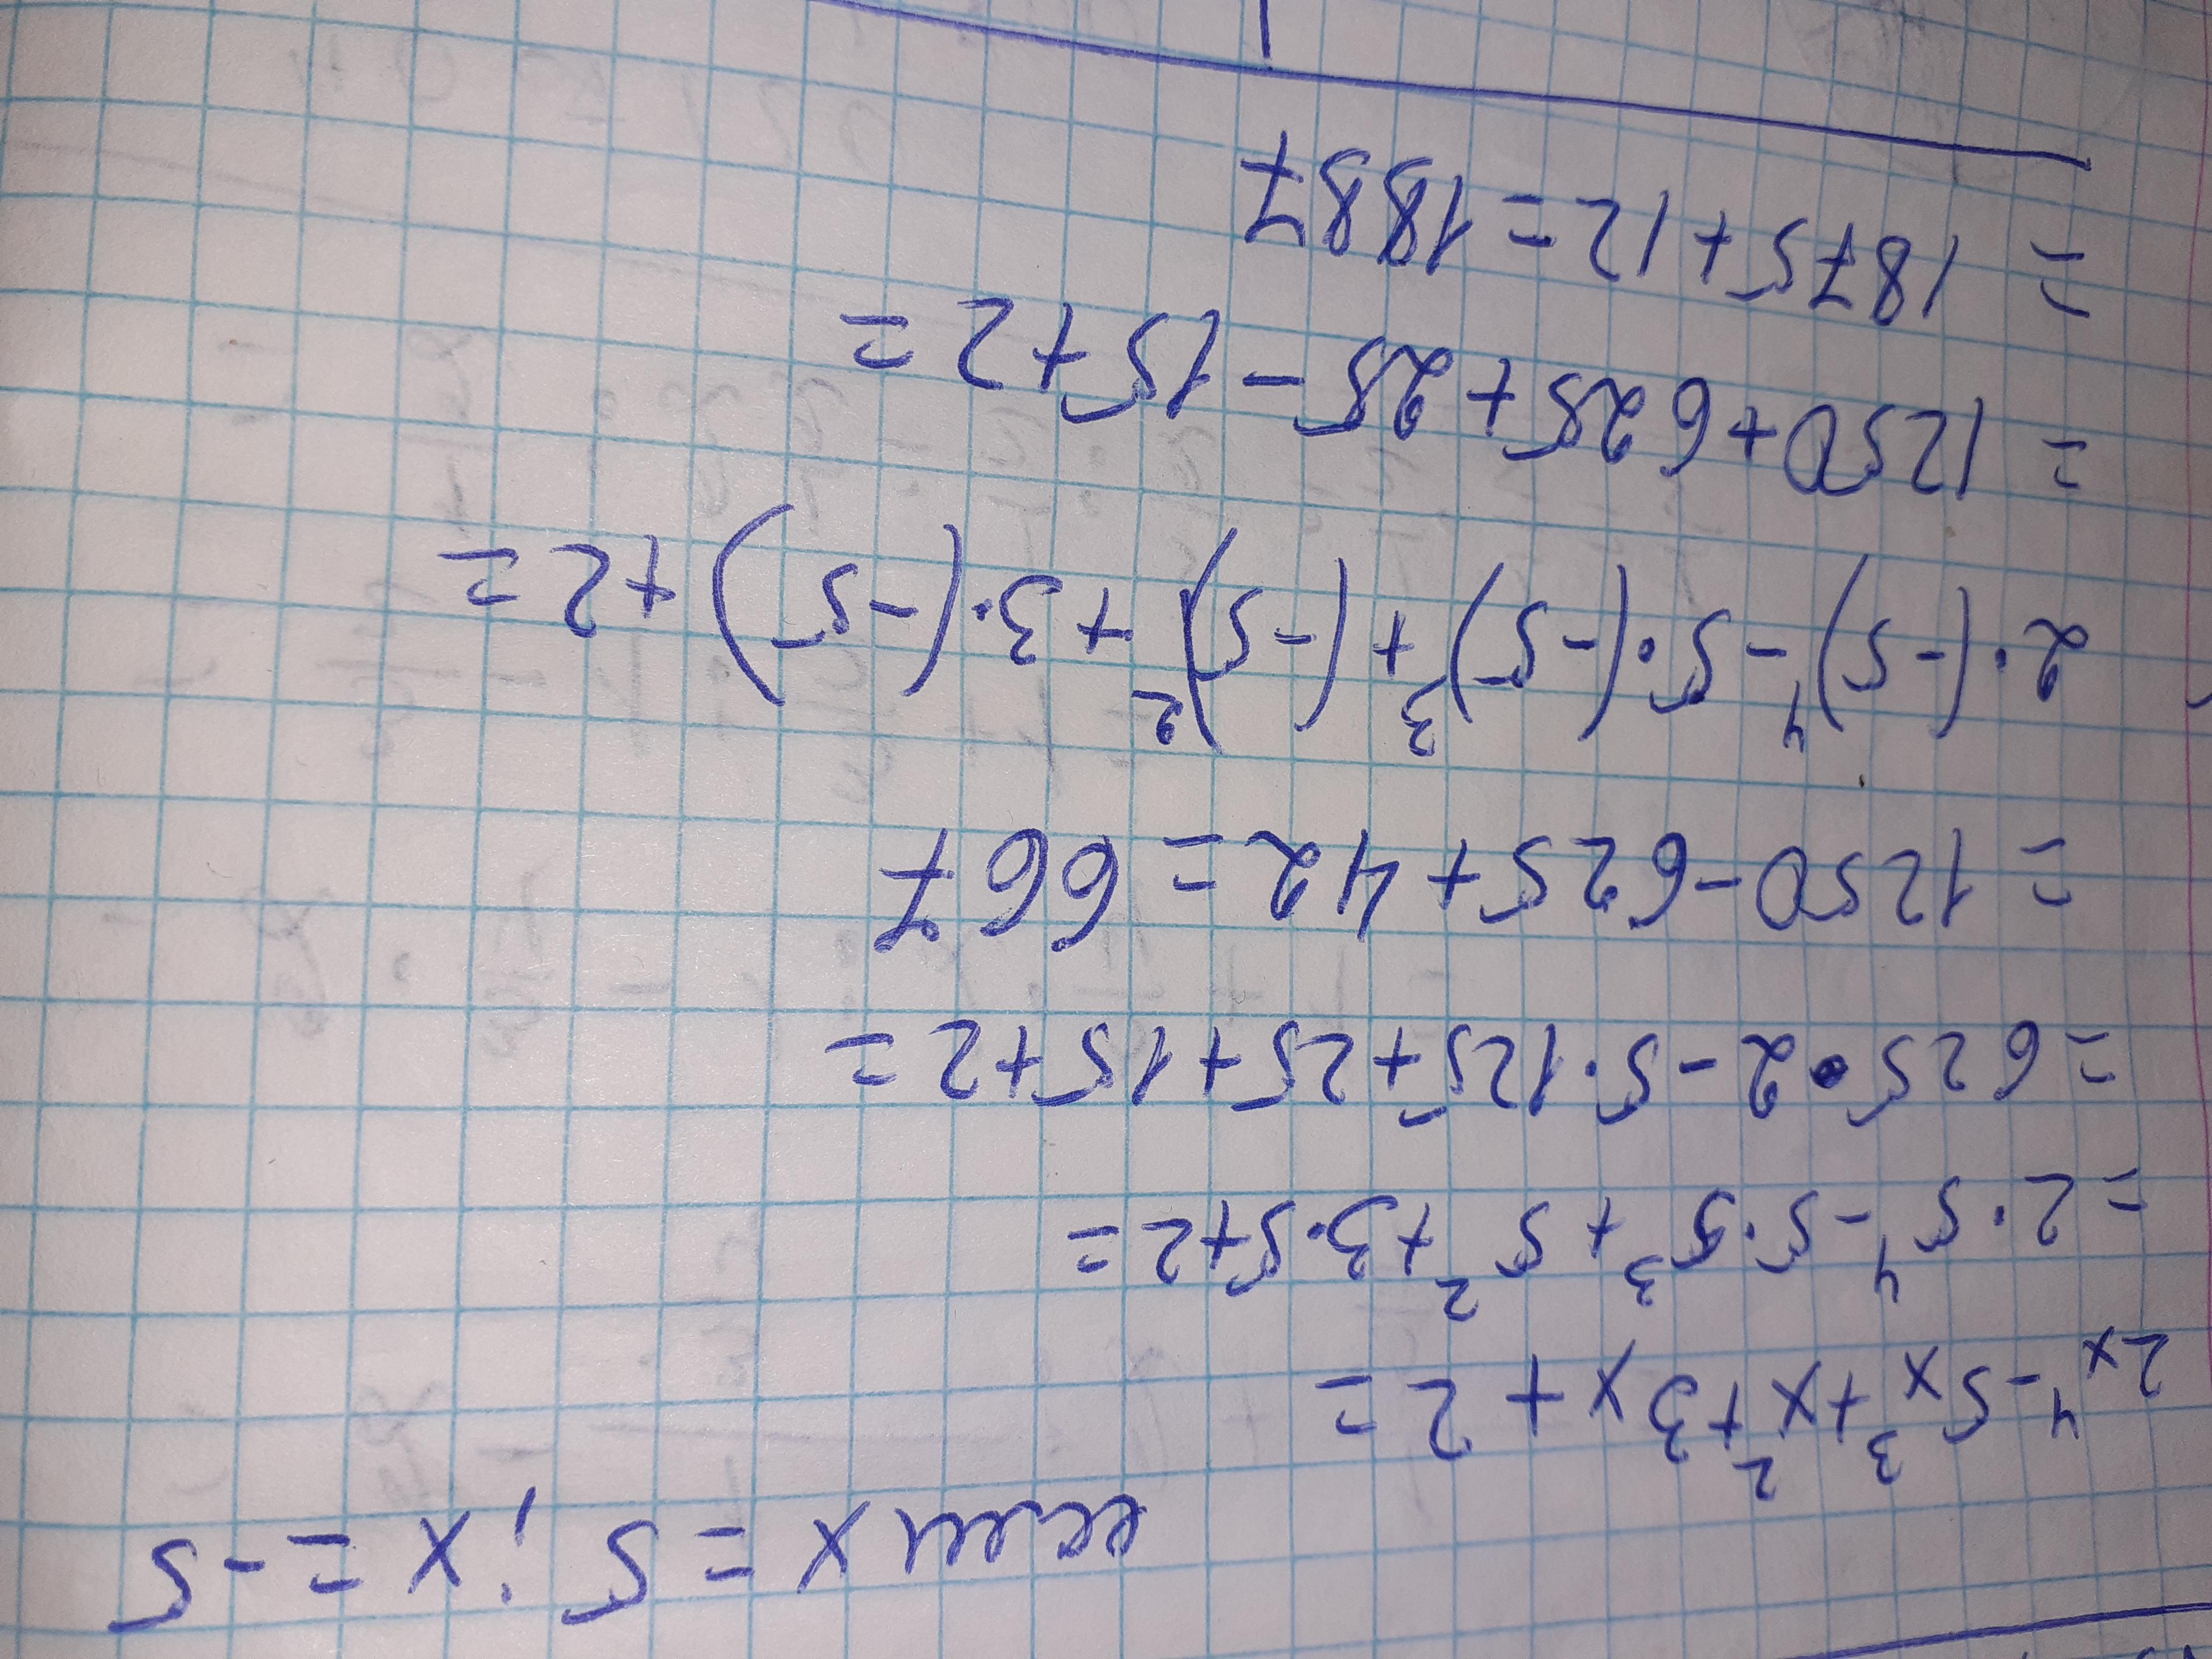 если x = 5 ; x = -5
2x⁴ - 5x³ + x² + 3x + 2 =
= 2 · 5⁴ - 5 · 5³ + 5² + 3 · 5 + 2 =
= 625 · 2 - 5 · 125 + 25 + 15 + 2 =
= 1250 - 625 + 42 = 667
2 · (-5)⁴ - 5 · (-5)³ + (-5)² + 3 · (-5) + 2 =
= 1250 + 625 + 25 - 15 + 2 =
= 1875 + 12 = 1887